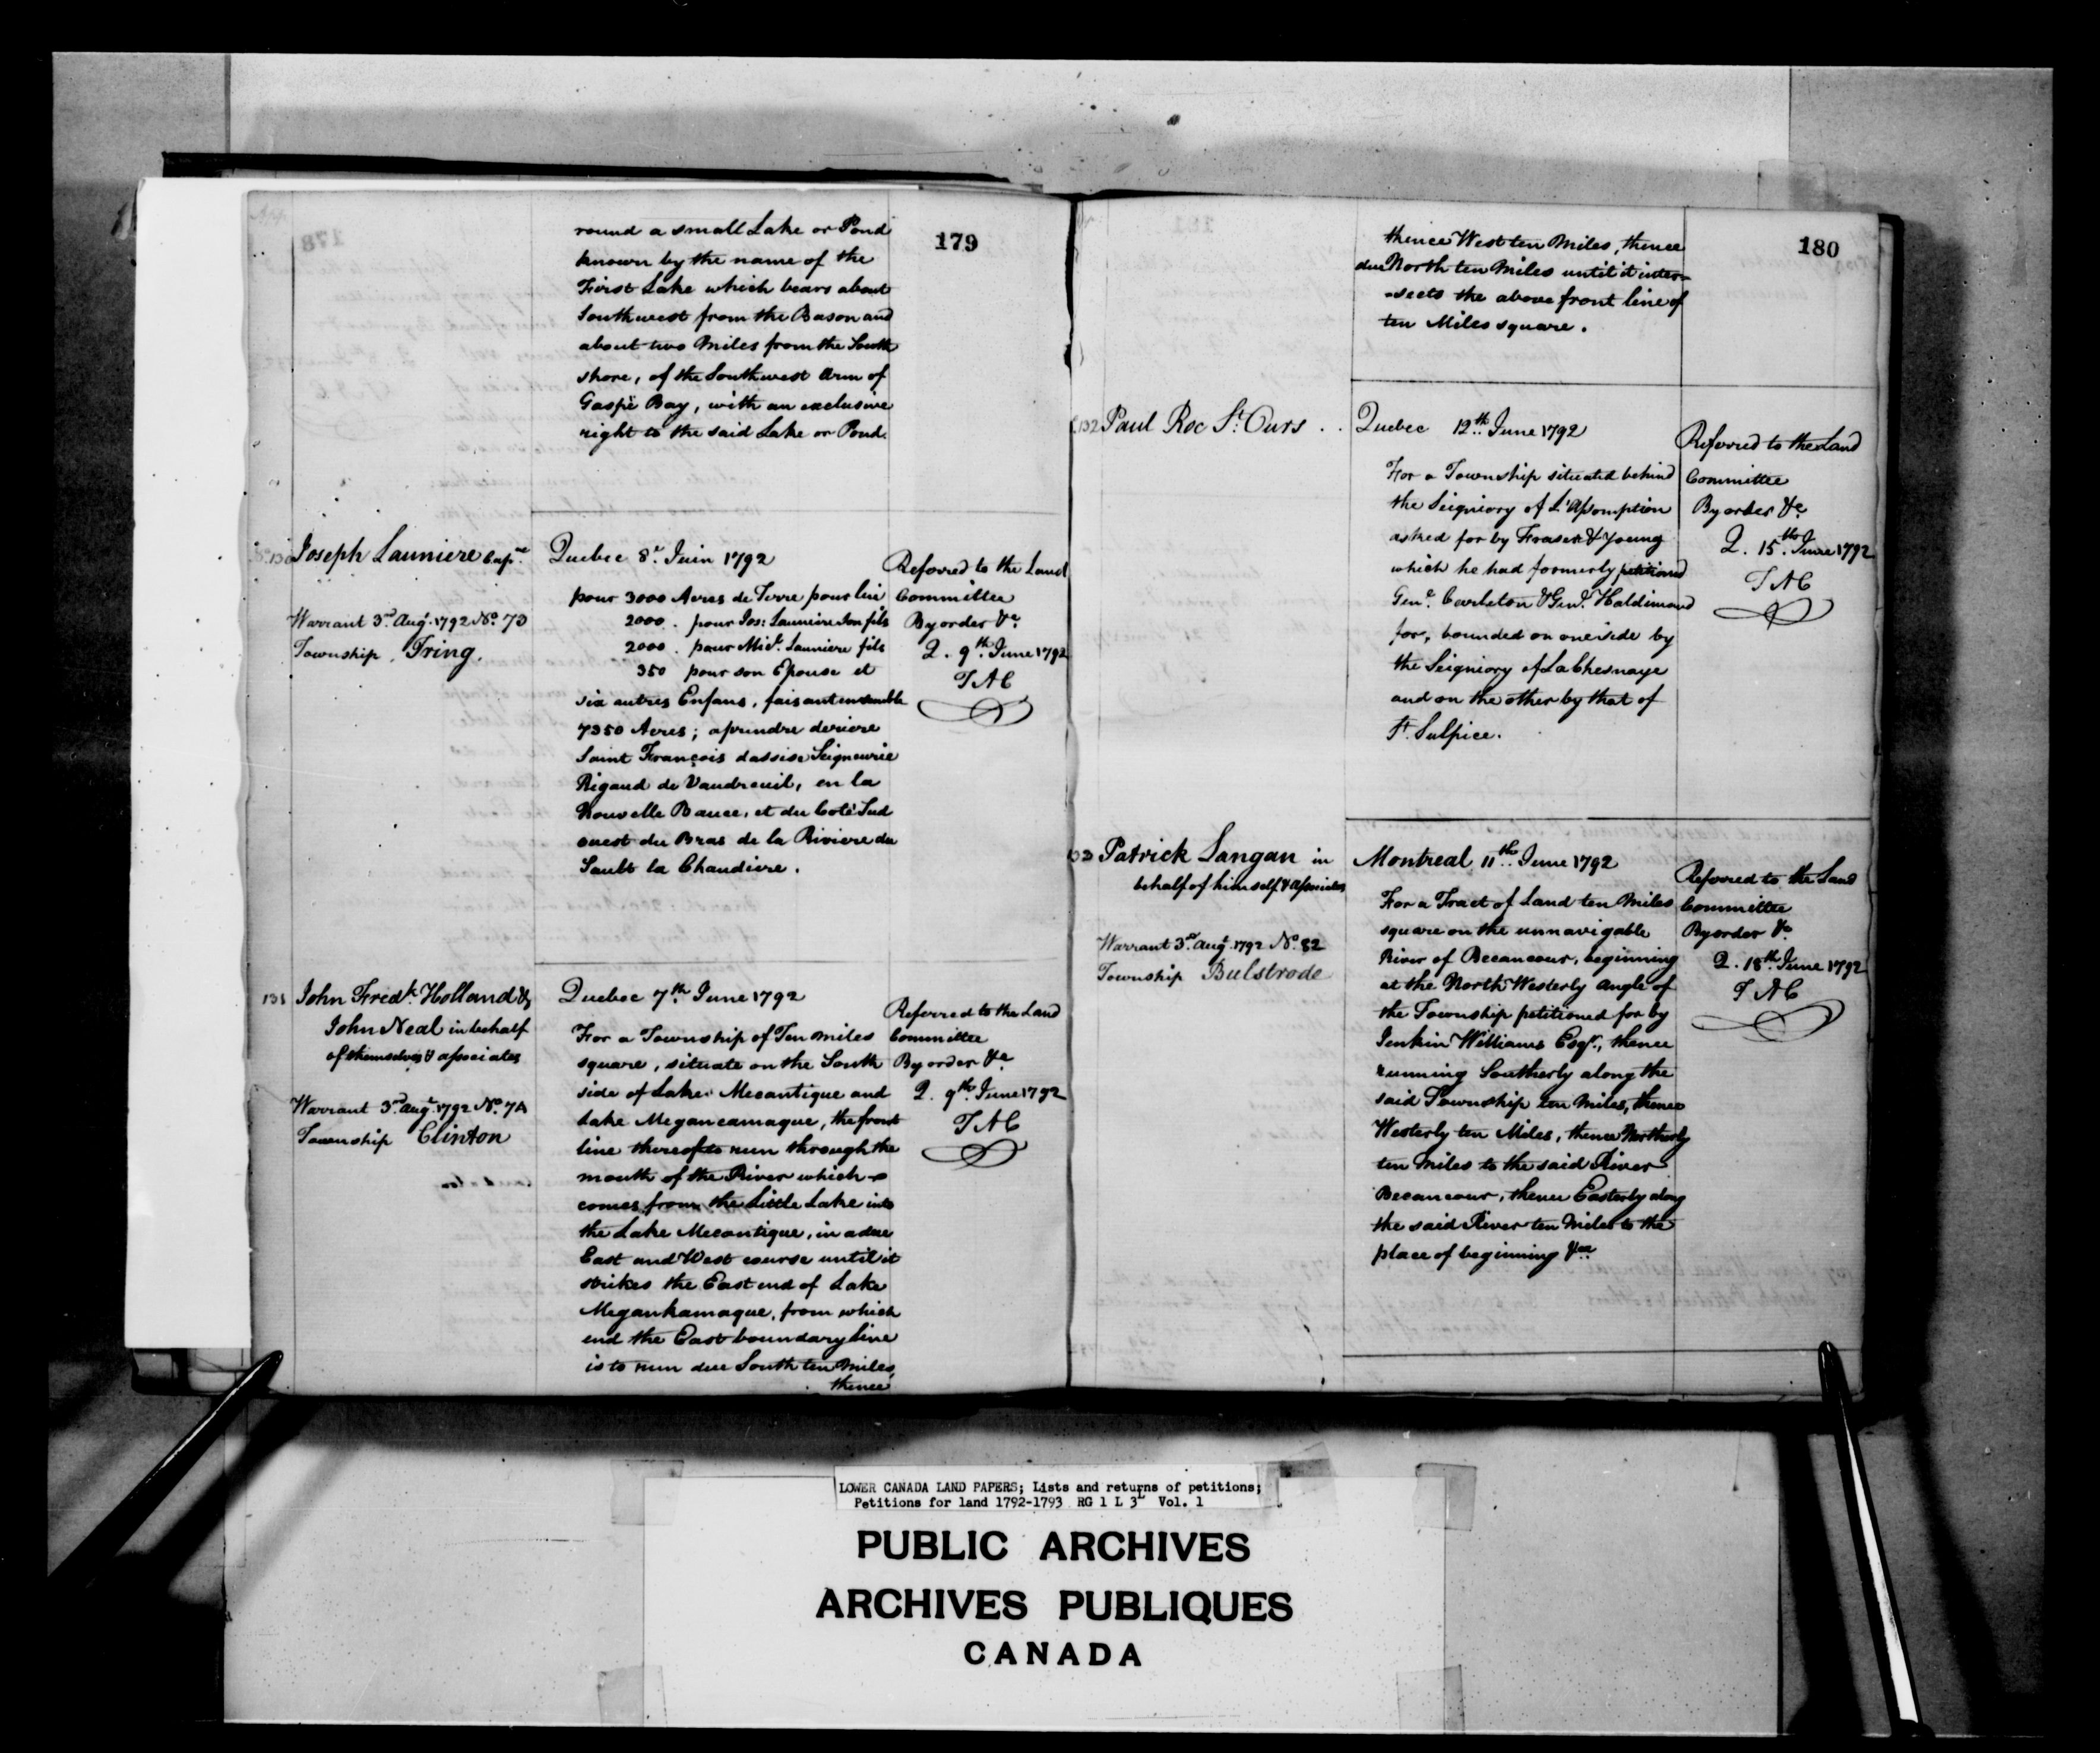 179
round a small Lake or Pond
known by the name of the
First Lake which bears about
Southwest from the Bason and
about two Miles from the South
shore, of the Southwest Arm of
Gaspé Bay, with an exclusive
right to the said Lake or Pond.
130 Joseph Launiere Capne
Warrant 3rd Augt 1792 No. 73
Township Tring.
Quebec 8e Juin 1792
pour 3000 Acres de Terre pour lui
2000 . pour Jos: Launiere son fils
2000 . pour Micl. Launiere fils
350 pour son Epouse et
six autres Enfans, faisant ensemble
7350 Acres; a prendre deriere
Saint François dassise Seigneurie
Rigaud de Vaudreuil, en la
Nouvelle Bauce, et du Coté Sud
ouest du Bras de la Riviere du
Sault la Chaudiere.
Referred to the Land
Committee
By order &c.
Q. 9th June 1792
TAC
131 John Fredk. Holland &
John Neal in behalf
of themselves & associates
Warrant 3rd Augt 1792 No. 74
Township Clinton
Quebec 7th June 1792
For a Township of Ten miles
square, situate on the South
side of Lake Mecantique and
Lake Megancamaque, the front
line thereof to run through the
mouth of the River which
comes from the Little Lake into
the Lake Mecantique, in a due
East and West course until it
strikes the East end of Lake
Megankamaque, from which
end the East boundary line
is to run due South ten Miles,
thence
Referred to the Land
Committee
By order &c.
Q. 9th June 1792
TAC
180
thence West ten Miles, thence
due North ten Miles until it inter-
-sects the above front line of
ten Miles square.
132 Paul Roc St. Ours . .
Quebec 12th June 1792
For a Township situated behind
the Seigniory of L'Assomption
asked for by Fraser & Young
which he had formerly petitioned
Genl. Carleton & Genl. Haldimand
for, bounded on one side by
the Seigniory of La Chesnaye
and on the other by that of
St. Sulpice.
Referred to the Land
Committee
By order &c.
Q. 15th June 1792
TAC
Patrick Langan in
behalf of himself & associates
Warrant 3rd Augt 1792 No. 82
Township Bulstrode
Montreal 11th June 1792
For a Tract of Land ten Miles
square on the unnavigable
River of Becancour, beginning
at the North Westerly Angle of
the Township petitioned for by
Jenkin Williams Esqr., thence
running Southerly along the
said Township ten Miles, thence
Westerly ten Miles, thence Northerly
ten Miles to the said River
Becancour, thence Easterly along
the said River ten Miles to the
place of beginning &ca
Referred to the Land
Committee
By order &c
Q. 18th June 1792
TAC
LOWER CANADA LAND PAPERS; Lists and returns of petitions;
Petitions for land 1792-1793 RG 1 L 3L Vol. 1
PUBLIC ARCHIVES
ARCHIVES PUBLIQUES
CANADA